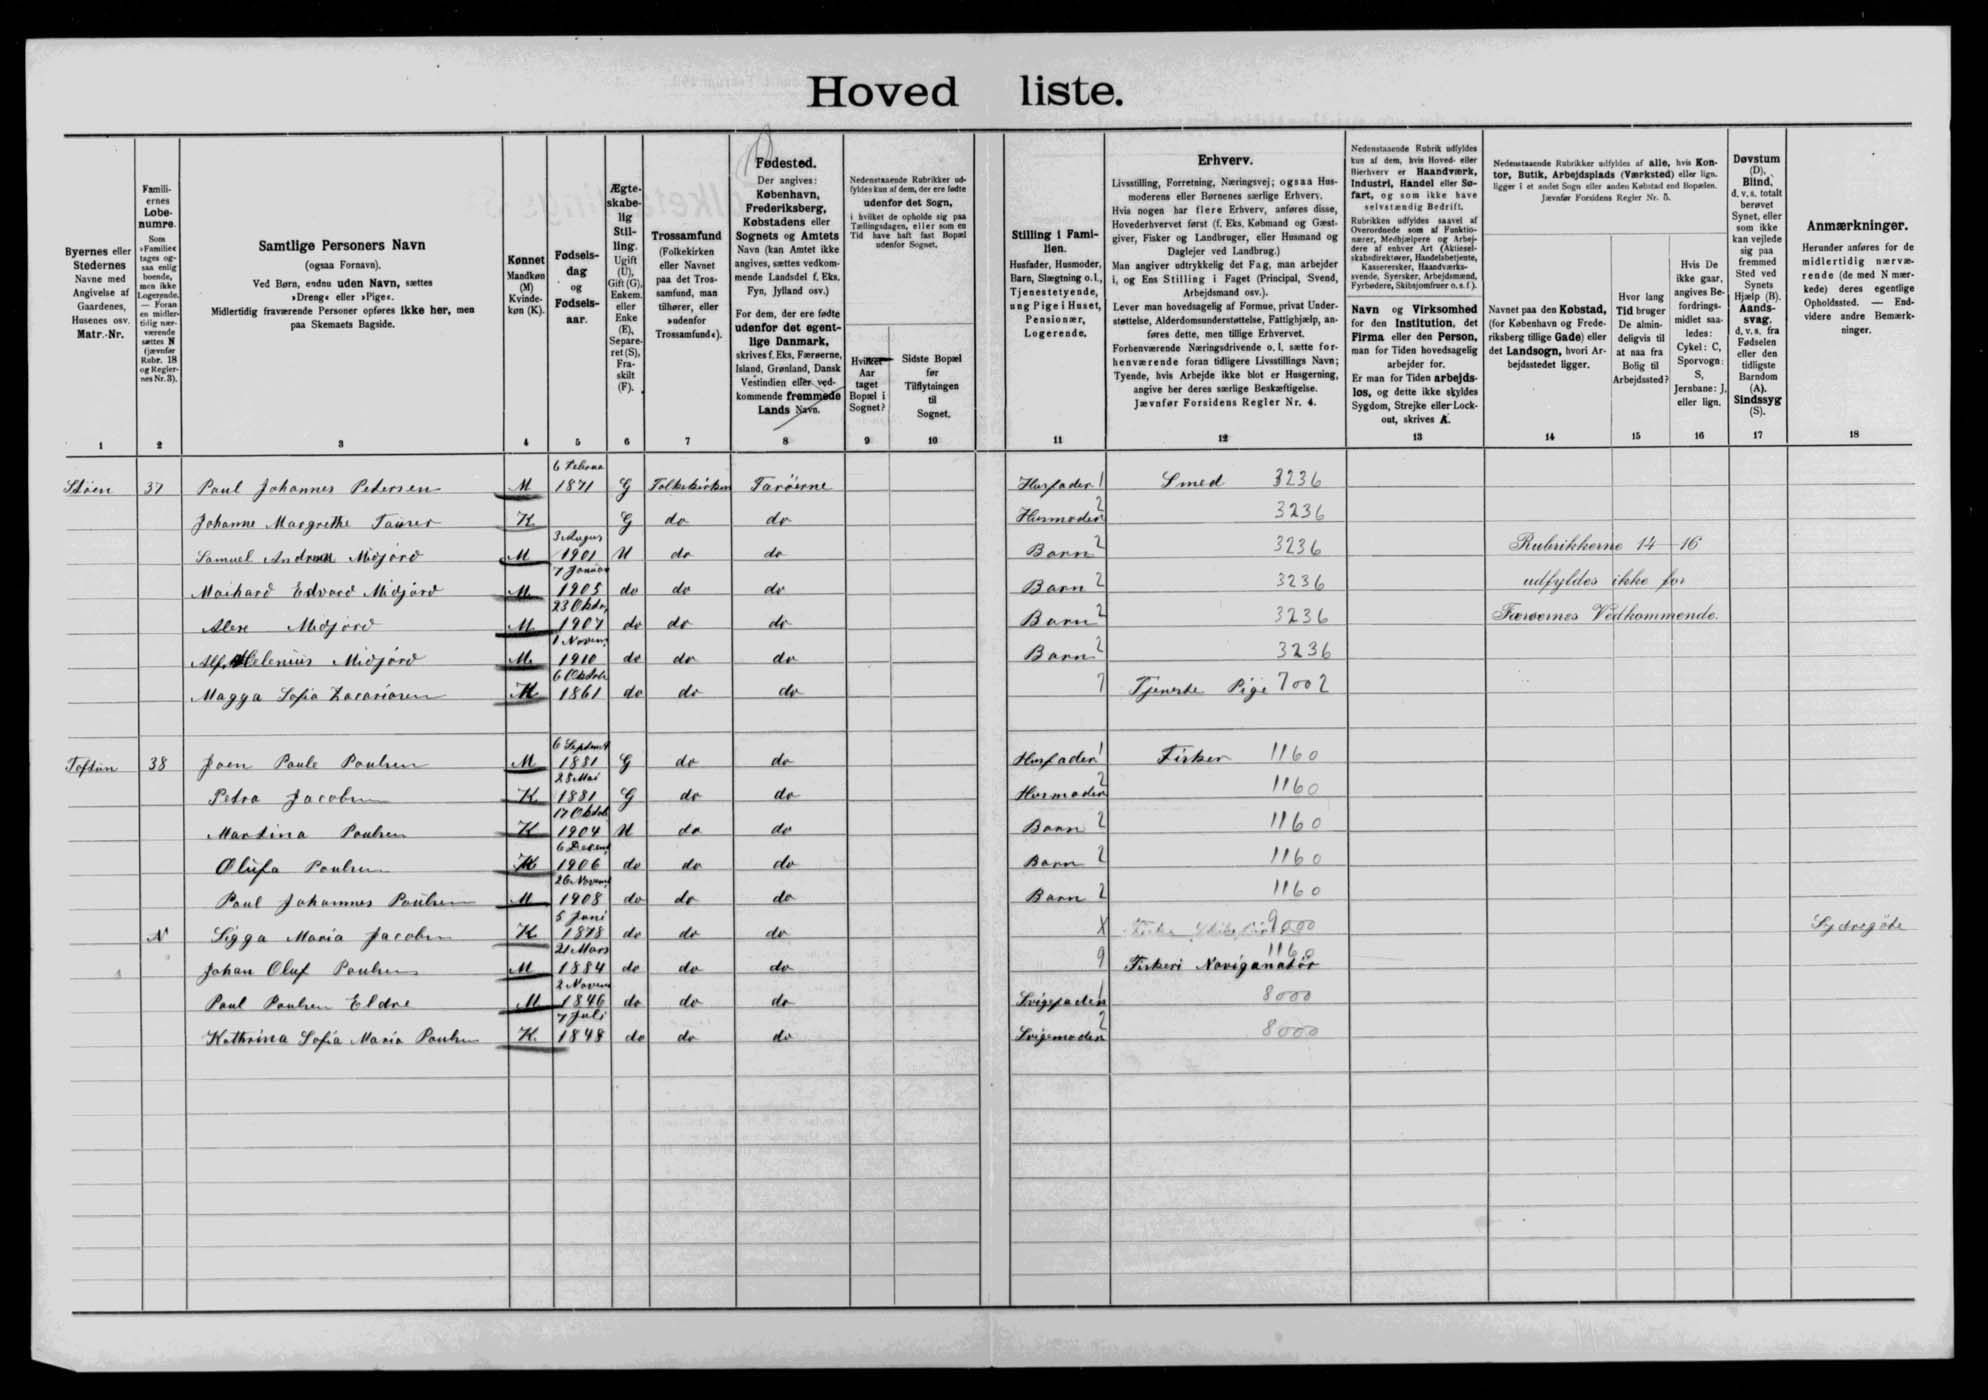 Hoved liste.
Byernes eller Stedernes Navne med Angivelse af Gaardenes, Husenes osv. Matr.-Nr.
Familiernes Løbenumre. Som »Familie« tages ogsaa enlig boende, men ikke Logerende. — Foran en midlertidig nærværende sættes N (jævnfør Rubr. 18 og Regiernes Nr. 3).
Samtlige Personers Navn
(ogsaa Fornavn).
Ved Børn, endnu uden Navn, sættes
»Dreng« eller »Pige«.
Midlertidig fraværende Personer opføres ikke her, men
paa Skemaets Bagside.
Kønnet Mandkøn (M) Kvindekøn (K).
Fødselsdag og Fødselsaar.
Ægteskabelig Stilling. Ugift (U), Gift (G), Enkem. eller Enke (E), Separeret (S), Fraskilt (F).
Trossamfund (Folkekirken eller Navnet paa det Trossamfund, man tilhører, eller »udenfor Trossamfund«).
Fødested.
Der angives: København, Frederiksberg, Købstadens eller Sognets og Amtets Navn (kan Amtet ikke angives, sættes vedkommende Landsdel f. Eks. Fyn, Jylland osv.)
For dem, der ere fødte udenfor det egentlige Danmark, skrives f. Eks. Færøerne, Island, Grønland, Dansk Vestindien eller vedkommende fremmede Lands Navn.
Nedenstaaende Rubrikker udfyldes kun af dem, der ere fødte udenfor det Sogn, i hvilket de opholde sig paa Tællingsdagen, eller som en Tid have haft fast Bopæl udenfor Sognet.
Hvilket Aar taget Bopæl i Sognet?
Sidste Bopæl før Tilflytningen til Sognet.
Stilling i Familien.
Husfader, Husmoder, Barn, Slægtning o. l., Tjenestetyende, ung Pige i Huset, Pensionær, Logerende.
Erhverv.
Livsstilling, Forretning, Næringsvej; ogsaa Husmoderens eller Børnenes særlige Erhverv.
Hvis nogen har flere Erhverv, anføres disse, Hovederhvervet først (f. Eks. Købmand og Gæstgiver, Fisker og Landbruger, eller Husmand og Daglejer ved Landbrug.)
Man angiver udtrykkelig det Fag, man arbejder i, og Ens Stilling i Faget (Principal, Svend, Arbejdsmand osv.).
Lever man hovedsagelig af Formue, privat Understøttelse, Alderdomsunderstøttelse, Fattighjælp, anføres dette, men tillige Erhvervet.
Forhenværende Næringsdrivende o. l. sætte forhenværende foran tidligere Livsstillings Navn; Tyende, hvis Arbejde ikke blot er Husgerning, angive her deres særlige Beskæftigelse.
Jævnfør Forsidens Regler Nr. 4.
Nedenstaaende Rubrik udfyldes kun af dem, hvis Hoved- eller Bierhverv er Haandværk, Industri, Handel eller Søfart, og som ikke have selvstændig Bedrift.
Rubrikken udfyldes saavel af Overordnede som af Funktionærer, Medhjælpere og Arbejdere af enhver Art (Aktieselskabsdirektører, Handelsbetjente, Kasserersker, Haandværkssvende, Syersker, Arbejdsmænd, Fyrbødere, Skibsjomfruer o. s. f.).
Navn og Virksomhed for den Institution, det Firma eller den Person, man for Tiden hovedsagelig arbejder for.
Er man for Tiden arbejdsløs, og dette ikke skyldes Sygdom, Strejke eller Lockout, skrives A.
Nedenstaaende Rubrikker udfyldes af alle, hvis Kontor, Butik, Arbejdsplads (Værksted) eller lign. ligger i et andet Sogn eller anden Købstad end Bopælen.
Jævnfør Forsidens Regler Nr. 5.
Navnet paa den Købstad, (for København og Frederiksberg tillige Gade) eller det Landsogn, hvori Arbejdsstedet ligger.
Hvor lang Tid bruger De almindeligvis til at naa fra Bolig til Arbejdssted?
Hvis De ikke gaar, angives Befordringsmidlet saaledes: Cykel: C, Sporvogn: S, Jernbane: J, eller lign.
Døvstum (D), Blind, d. v. s. totalt berøvet Synet, eller som ikke kan vejlede sig paa fremmed Sted ved Synets Hjælp (B). Aandssvag, d. v. s. fra Fødselen eller den tidligste Barndom (A). Sindssyg (S).
Anmærkninger.
Herunder anføres for de midlertidig nærværende (de med N mærkede) deres egentlige Opholdssted. — Endvidere andre Bemærkninger.
1 2 3 4 5 6 7 8 9 10 11 12 13 14 15 16 17 18
37 Paul Johannes Petersen M 6 Februa 1871 G Folkekirken Færøerne Husfader 1 Smed 3236
Johanne Margrethe K G do do Husmoder 2 3236
Samuel Andreas Midjord M 3 Augus 1901 U do do Barn 2 3236 Rubrikkerne 14-16
Edvard Midjord M 7 Januar 1905 do do do Barn 2 3236 udfyldes ikke for
Midjord M 23 Oktob 1907 do do do Barn 2 3236 Færøernes Vedkommende.
Midjord M 1 Novem 1910 do do do Barn 2 3236
Magga Sofia Zacariasen 6 Oktob 1861 do do do 7 Tjeneste Pige 7002
38 Joen Paule Poulsen M 6 Septemb 1881 G do do Husfader 1 Fisker 1160
Petra Jacobsen K 28 Mai 1881 G do do Husmoder 2 1160
Martina Poulsen K 17 Oktob 1904 U do do Barn 2 1160
Olufa Poulsen K 6 Decem 1906 do do do Barn 2 1160
Poul Johannes Poulsen M 26 Novem 1908 do do do Barn 2 1160
N Sigga Maria Jacobsen K 5 Juni 1878 do do do X 9000
Johan Oluf Poulsen M 21 Mars 1884 do do do 9 Fiskeri Naviganatør 1160
Poul Poulsen Eldre M 2 Novem 1846 do do do Svigefader 1 8000
Kathrina Sofia Maria Poulsen K 7 Juli 1848 do do do Svigemoder 2 8000